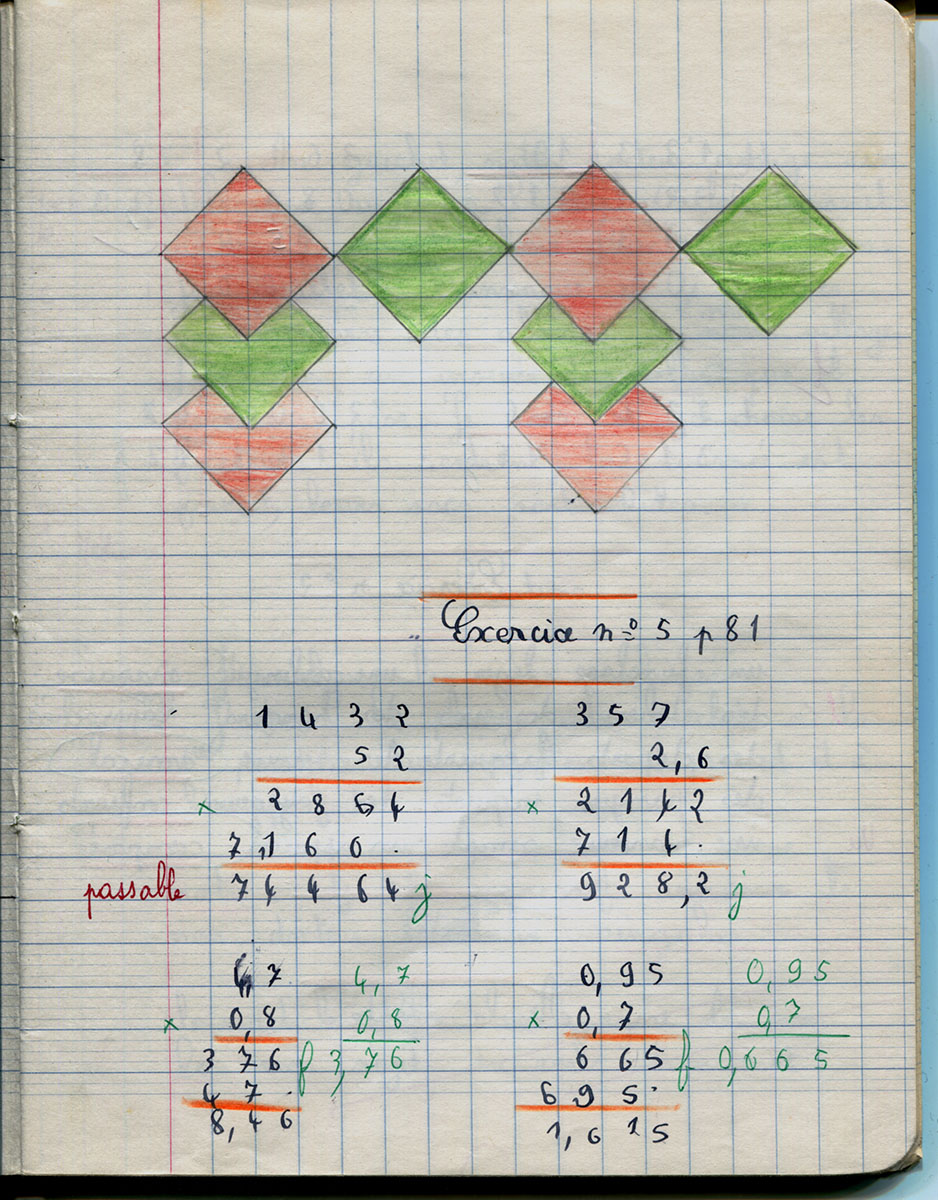 Exercice n° 5 p 81
1 4 3 2    3 5 7
5 2    2,6
× 2 8 6 4    × 2 1 4 2
7 1 6 0 .    7 1 4 .
passable 7 4 4 6 4 j    9 2 8,2 j
4,7    4,7    0,95    0,95
× 0,8    0,8    × 0,7    0,7
3 7 6 f 3,76    6 65 f 0,665
4 7 .    6 9 5 .
8,46    1,6 15